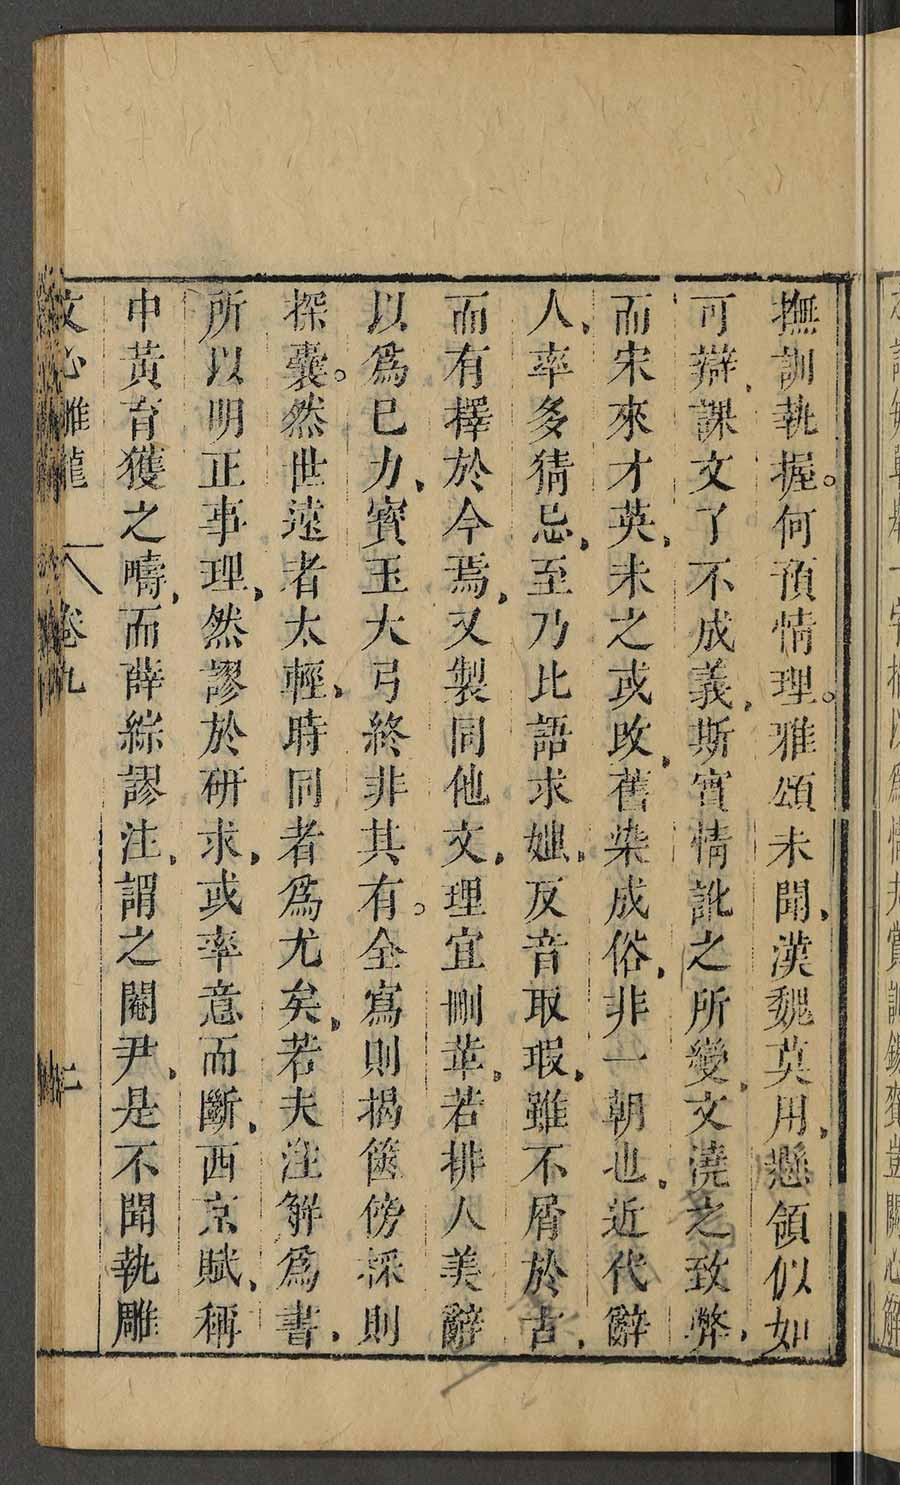 撫訓執握。何預情理。雅頌未聞、漢魏莫用、懸領似如
可辯、課文了不成義、斯實情訛之所變、文澆之致弊、
而宋來才英、未之或改、舊染成俗、非一朝也、近代辭
人、率多猜忌、至乃比語求媸、反音取瑕、雖不屑於古、
而有擇於今焉、又製同他文、理宜刪革、若排人美辭
以爲巳力、寳玉大弓終非其有。全寫則揭篋傍採則
探囊。然世遠者太輕、時同者爲尤矣、若夫注解爲書、
所以明正事理、然謬於研求、或率意而斷、西京賦、稱
中黃育獲之疇、而薛綜謬注、謂之閹尹、是不聞執雕
文心雕龍 卷九 二